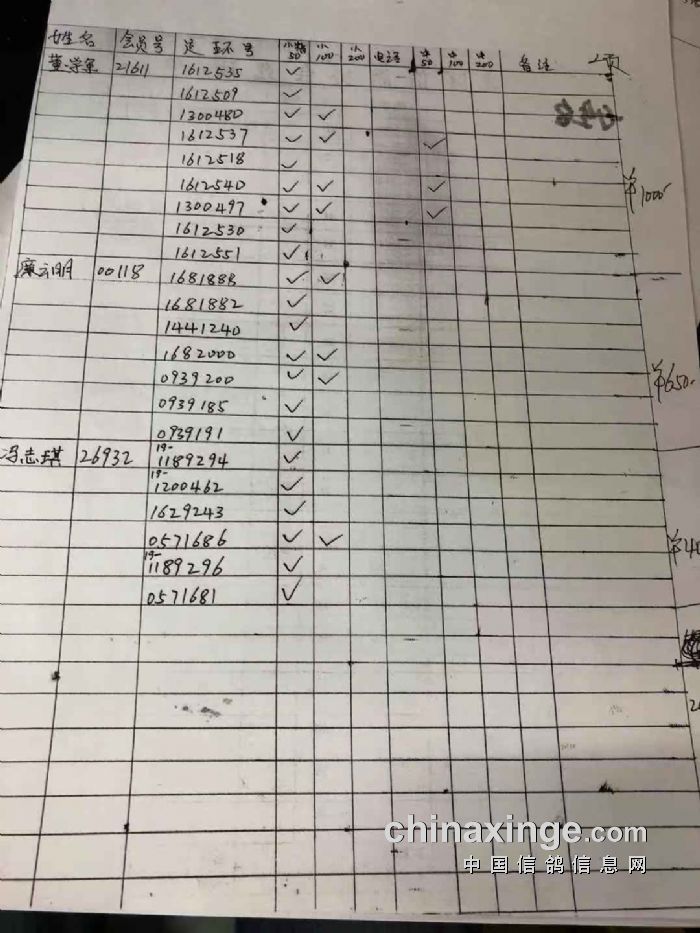 姓名 会员号 足环号 小精50 小100 小200 电话 中50 中100 中200 备注 2页
董学军 21611 1612535 ✓
1612509 ✓
1300480 ✓ ✓
1612537 ✓ ✓ ✓
1612518 ✓
1612540 ✓ ✓ ✓ ¥1000-
1300497 ✓ ✓ ✓
1612530 ✓
1612551 ✓
廖云明 00118 1681888 ✓ ✓
1681882 ✓
1441240 ✓
1682000 ✓ ✓
0939200 ✓ ✓ ¥650-
0939185 ✓
0939191 ✓
冯志琪 26932 19-1189294 ✓
19-1200462 ✓
1629243 ✓
0571686 ✓ ✓ ¥40
19-1189296 ✓
0571681 ✓
chinaxinge.com
中国信鸽信息网